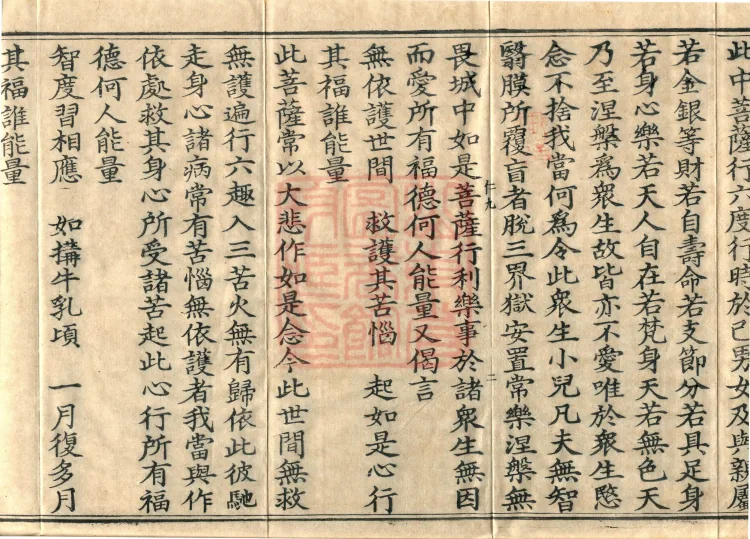 此中菩薩行六度行時於己男女及與親屬
若金銀等財若自壽命若支節分若具足身
若身心樂若天人自在若梵身天若無色天
乃至涅槃爲衆生故皆亦不愛唯於衆生愍
念不捨我當何爲令此衆生小兒凡夫無智
翳膜所覆盲者脫三界獄安置常樂涅槃無
畏城中如是菩薩行利樂事於諸衆生無因
仁九
二
而愛所有福德何人能量又偈言
無依護世間 救護其苦惱 起如是心行
其福誰能量
此菩薩常以大悲作如是念今此世間無救
無護遍行六趣入三苦火無有歸依此彼馳
走身心諸病常有苦惱無依護者我當與作
依處救其身心所受諸苦起此心行所有福
德何人能量
智度習相應 如搆牛乳頃 一月復多月
其福誰能量